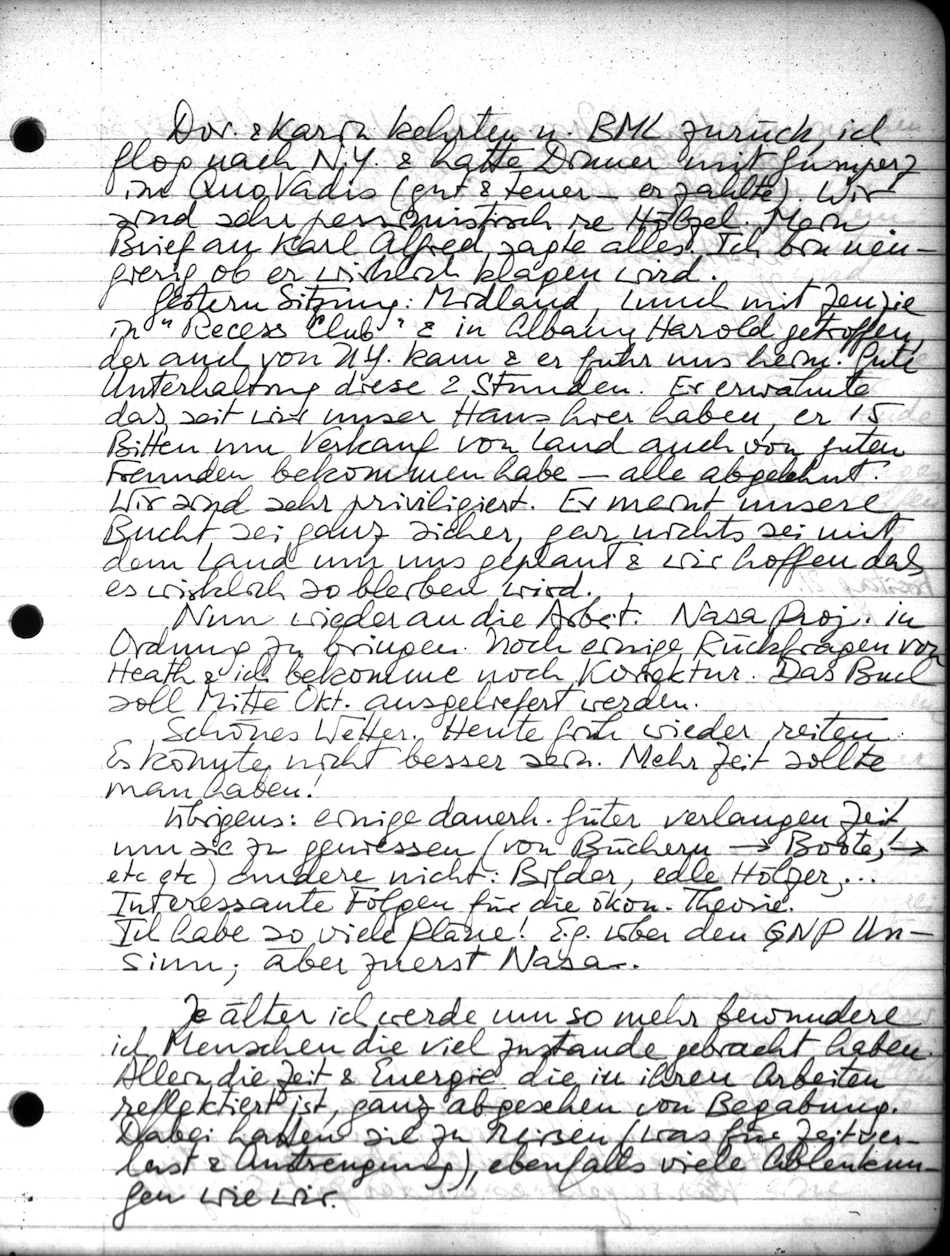 Dor. & Karin kehrten n. BML zurück, ich
flog nach N.Y. & hatte Dinner mit Gumperz
im Quo Vadis (gut & teuer — er zahlte). Wir
sind sehr pessimistisch re Hölzel. Mein
Brief an Karl Alfred sagte alles. Ich bin neu-
gierig ob er wirklich klagen wird.
Gestern Sitzung: Midland, Lunch mit
in "Recess Club" & in Albany Harold getroffen,
der auch von N.Y. kam & er fuhr uns heim. Gute
Unterhaltung diese 2 Stunden. Er erwähnte
daß seit wir unser Haus hier haben, er 15
Bitten um Verkauf von Land auch von guten
Freunden bekommen habe — alle abgelehnt.
Wir sind sehr priviligiert. Er meint unsere
Bucht sei ganz sicher, gar nichts sei mit
dem Land um uns geplant & wir hoffen daß
es wirklich so bleiben wird.
Nun wieder an die Arbeit. Nasa Proj. in
Ordnung zu bringen. Noch einige Rückfragen von
Heath & ich bekomme noch Korrektur. Das Buch
soll Mitte Okt. ausgeliefert werden.
Schönes Wetter. Heute früh wieder reiten.
Es könnte nicht besser sein. Mehr Zeit sollte
man haben!
Übrigens: einige dauerh. Güter verlangen Zeit
um sie zu geniessen (von Büchern → Boote, →
etc etc) andere nicht: Bilder, edle Hölzer, ...
Interessante Folgen für die ökon. Theorie.
Ich habe so viele Pläne! E.g. über den GNP Un-
sinn; aber zuerst Nasa.
Je älter ich werde um so mehr bewundere
ich Menschen die viel zustande gebracht haben.
Allein die Zeit & Energie die in ihren Arbeiten
reflektiert ist, ganz abgesehen von Begabung.
Dabei hatten sie zu reisen (was für Zeitver-
lust & Anstrengung), ebenfalls viele Ablenkun-
gen wie wir.